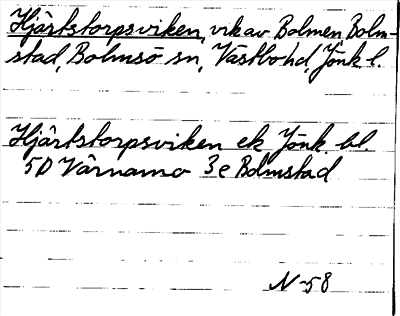 Hjärtstorpsviken, vik av Bolmen, Bolm-
stad, Bolmsö sn, Västbo hd, Jönk l.
Hjärtstorpsviken ek Jönk bl.
5D Värnamo 3e Bolmstad
N-58